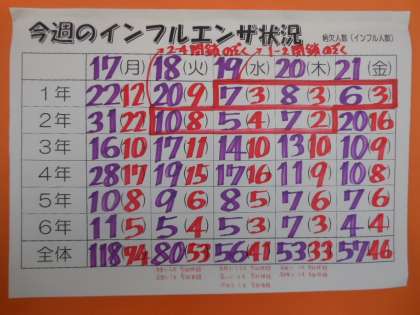 今週のインフルエンザ状況
病欠人数(インフル人数)
2-4閉鎖のぞく 1-2閉鎖のぞく
17(月) 18(火) 19(水) 20(木) 21(金)
1年 22(12) 20(9) 7(3) 8(3) 6(3)
2年 31(22) 10(8) 5(4) 7(2) 20(16)
3年 16(10) 17(11) 14(10) 13(10) 9(9)
4年 28(17) 19(15) 17(16) 11(9) 10(8)
5年 10(8) 9(6) 8(5) 7(6) 7(6)
6年 11(5) 5(4) 5(3) 7(3) 5(4)
全体 118(94) 80(53) 56(41) 53(33) 57(46)